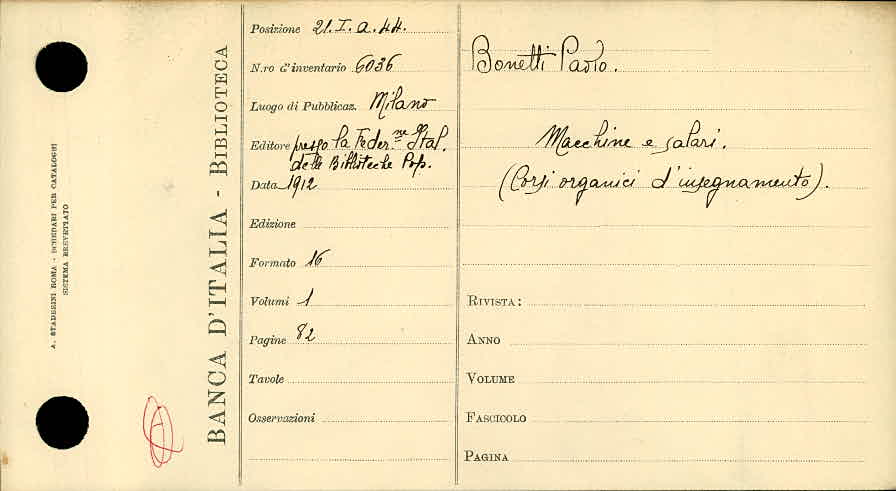 A. STADERINI ROMA - SCHEDARI PER CATALOGHI
SISTEMA BREVETTATO
BANCA D'ITALIA - BIBLIOTECA
Posizione 21. I. a. 44.
N.ro d'inventario 6036
Luogo di Pubblicaz. Milano
Editore presso la Feder.ne Ital.
delle Biblioteche Pop.
Data 1912
Edizione
Formato 16
Volumi 1
Pagine 82
Tavole
Osservazioni
Bonetti Paolo.
Macchine e salari.
(Corsi organici d'insegnamento).
RIVISTA:
ANNO
VOLUME
FASCICOLO
PAGINA